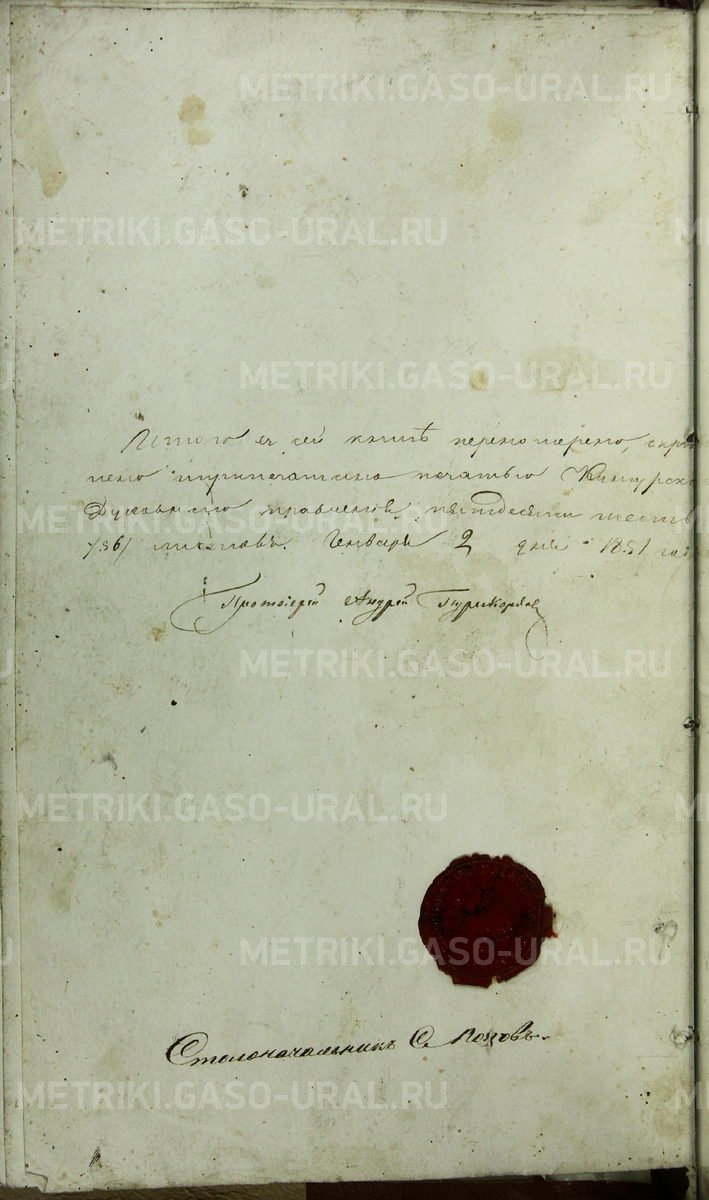 METRIKI.GASO-URAL.RU
METRIKI.GASO-URAL.RU
METRIKI.GASO-URAL.RU
Итого въ сей книгѣ перенумерено, скрѣ
плено припечатано печатью
METRIKI.GASO-URAL.RU
Духовнаго правленія пятьдесятъ шесть
/56/ листовъ. Генваря 2 дня 1851 года
Протоіерей Андрей
METRIKI.GASO-URAL.RU
METRIKI.GASO-URAL.RU
METRIKI.GASO-URAL.RU
Столоначальникъ С. Поповъ.
METRIKI.GASO-URAL.RU